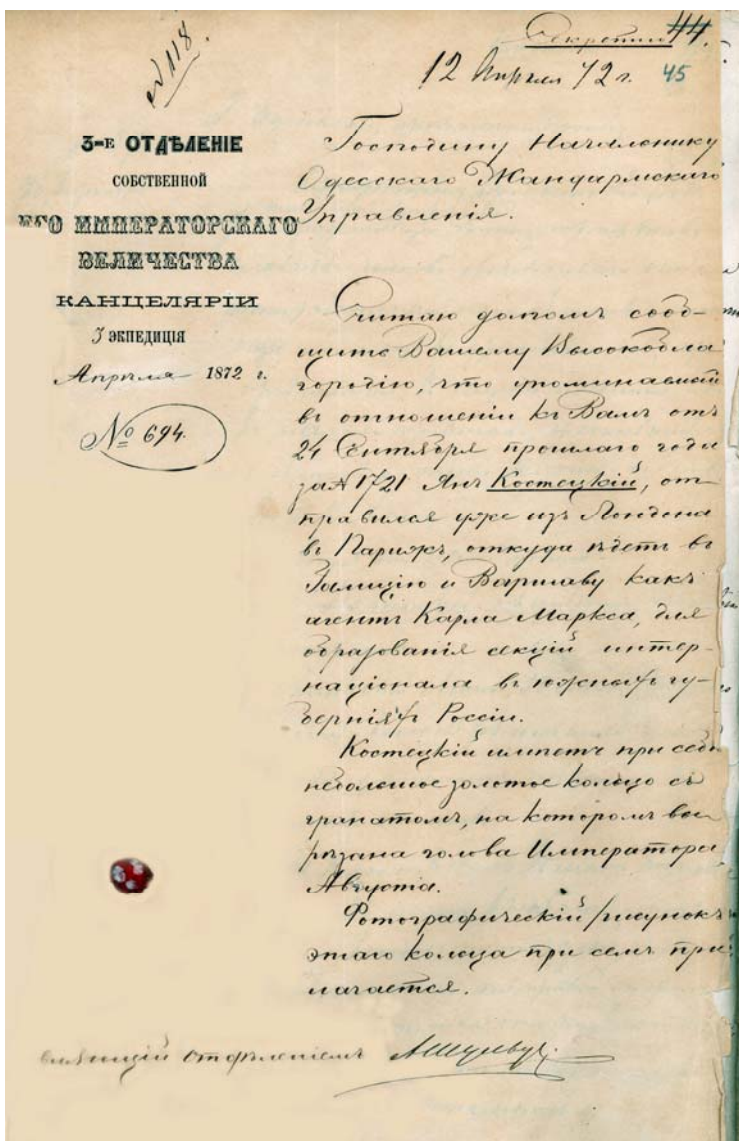 № 118.
Секретно 44.
12 Апреля 72 г. 45
3-Е ОТДѢЛЕНІЕ
СОБСТВЕННОЙ
ЕГО ИМПЕРАТОРСКАГО
ВЕЛИЧЕСТВА
КАНЦЕЛЯРІИ
3 ЭКСПЕДИЦІЯ
Апрѣля 1872 г.
№ 694.
Господину Начальнику
Одесскаго Жандармскаго
Управленія.
Считаю долгомъ сооб-
щить Вашему Высокобла
городію, что упоминаемый
въ отношеніи къ Вамъ отъ
24 Сентября прошлаго года
за № 1721 Янъ Костецкій, от
правился уже изъ Лондона
въ Парижъ, откуда ѣдетъ въ
Галицію и Варшаву какъ
агентъ Карла Маркса, для
образованія секцій интер-
націонала въ южныхъ гу-
берніяхъ Россіи.
Костецкій имѣетъ при себѣ
небольшое золотое кольцо съ
гранатомъ, на которомъ вы
рѣзана голова Императора
Августа.
Фотографическій рисунокъ
этаго кольца при семъ при
лагается.
отдѣленіемъ АШульцъ.